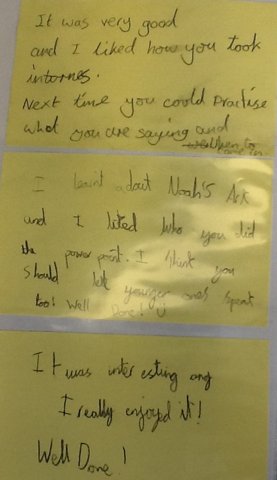 It was very good
and I liked how you took
intornes.
Next time you could practise
what you are saying and
when to
come in.
I learnt about Noah's Ark
and I liked who you did
the power point. I think you
should let younger ones speak
too! Well Done! :)
It was interesting and
I really enjoyed it!
Well Done!